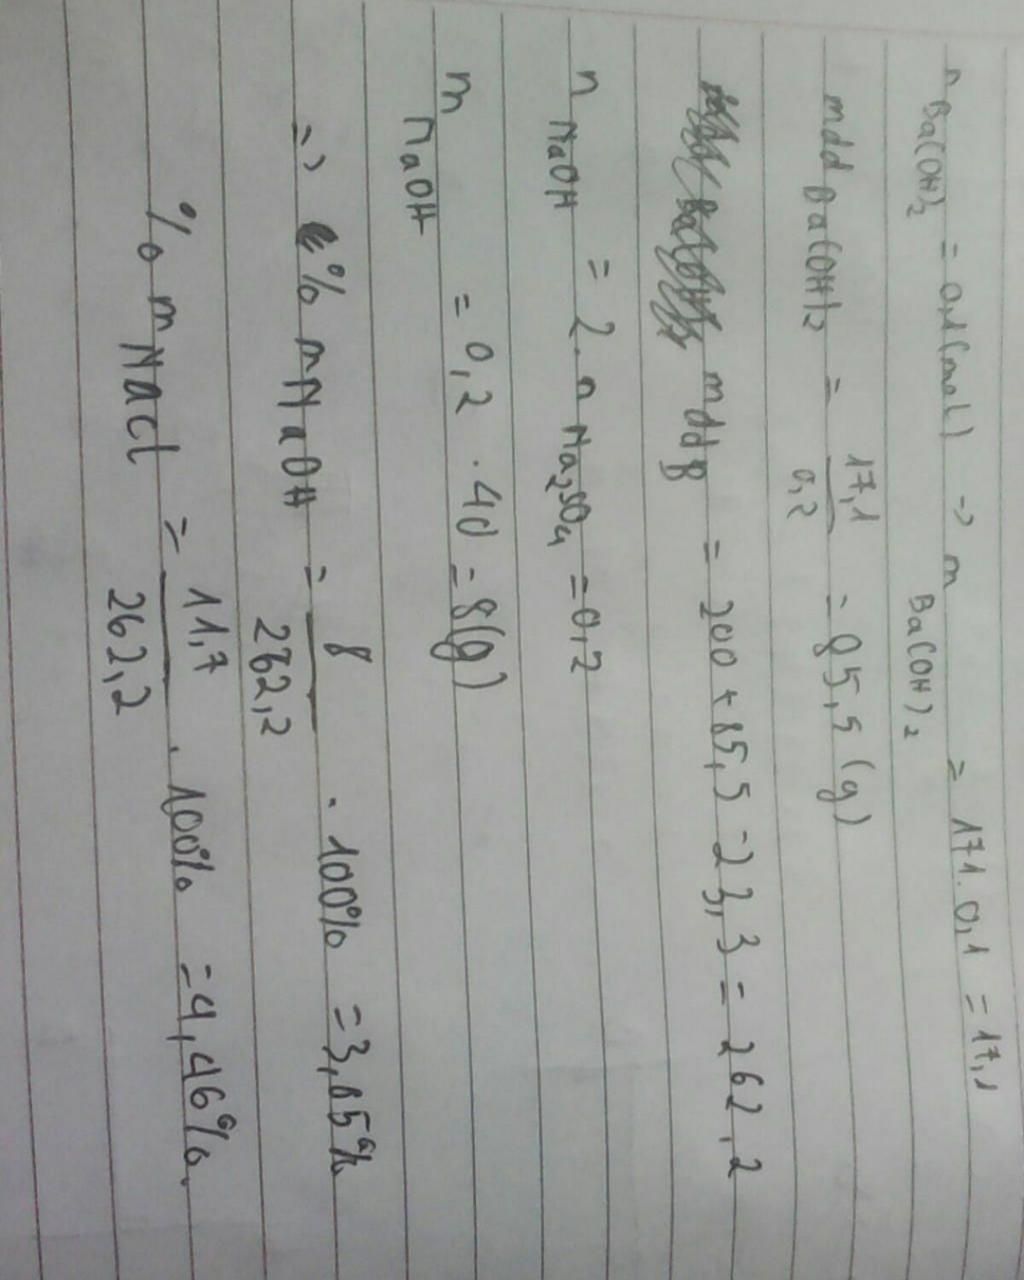 n Ba(OH)2 = 0,1(mol) -> m Ba(OH)2 = 171.0,1 = 17,1
mdd Ba(OH)2 = 17,1 / 0,2 = 85,5 (g)
mdd B = 200 + 85,5 - 23,3 = 262,2
n NaOH = 2. n Na2SO4 = 0,2
m NaOH = 0,2 . 40 = 8(g)
=> % m NaOH = 8 / 262,2 . 100% = 3,05%
% m NaCl = 11,7 / 262,2 . 100% = 4,46%